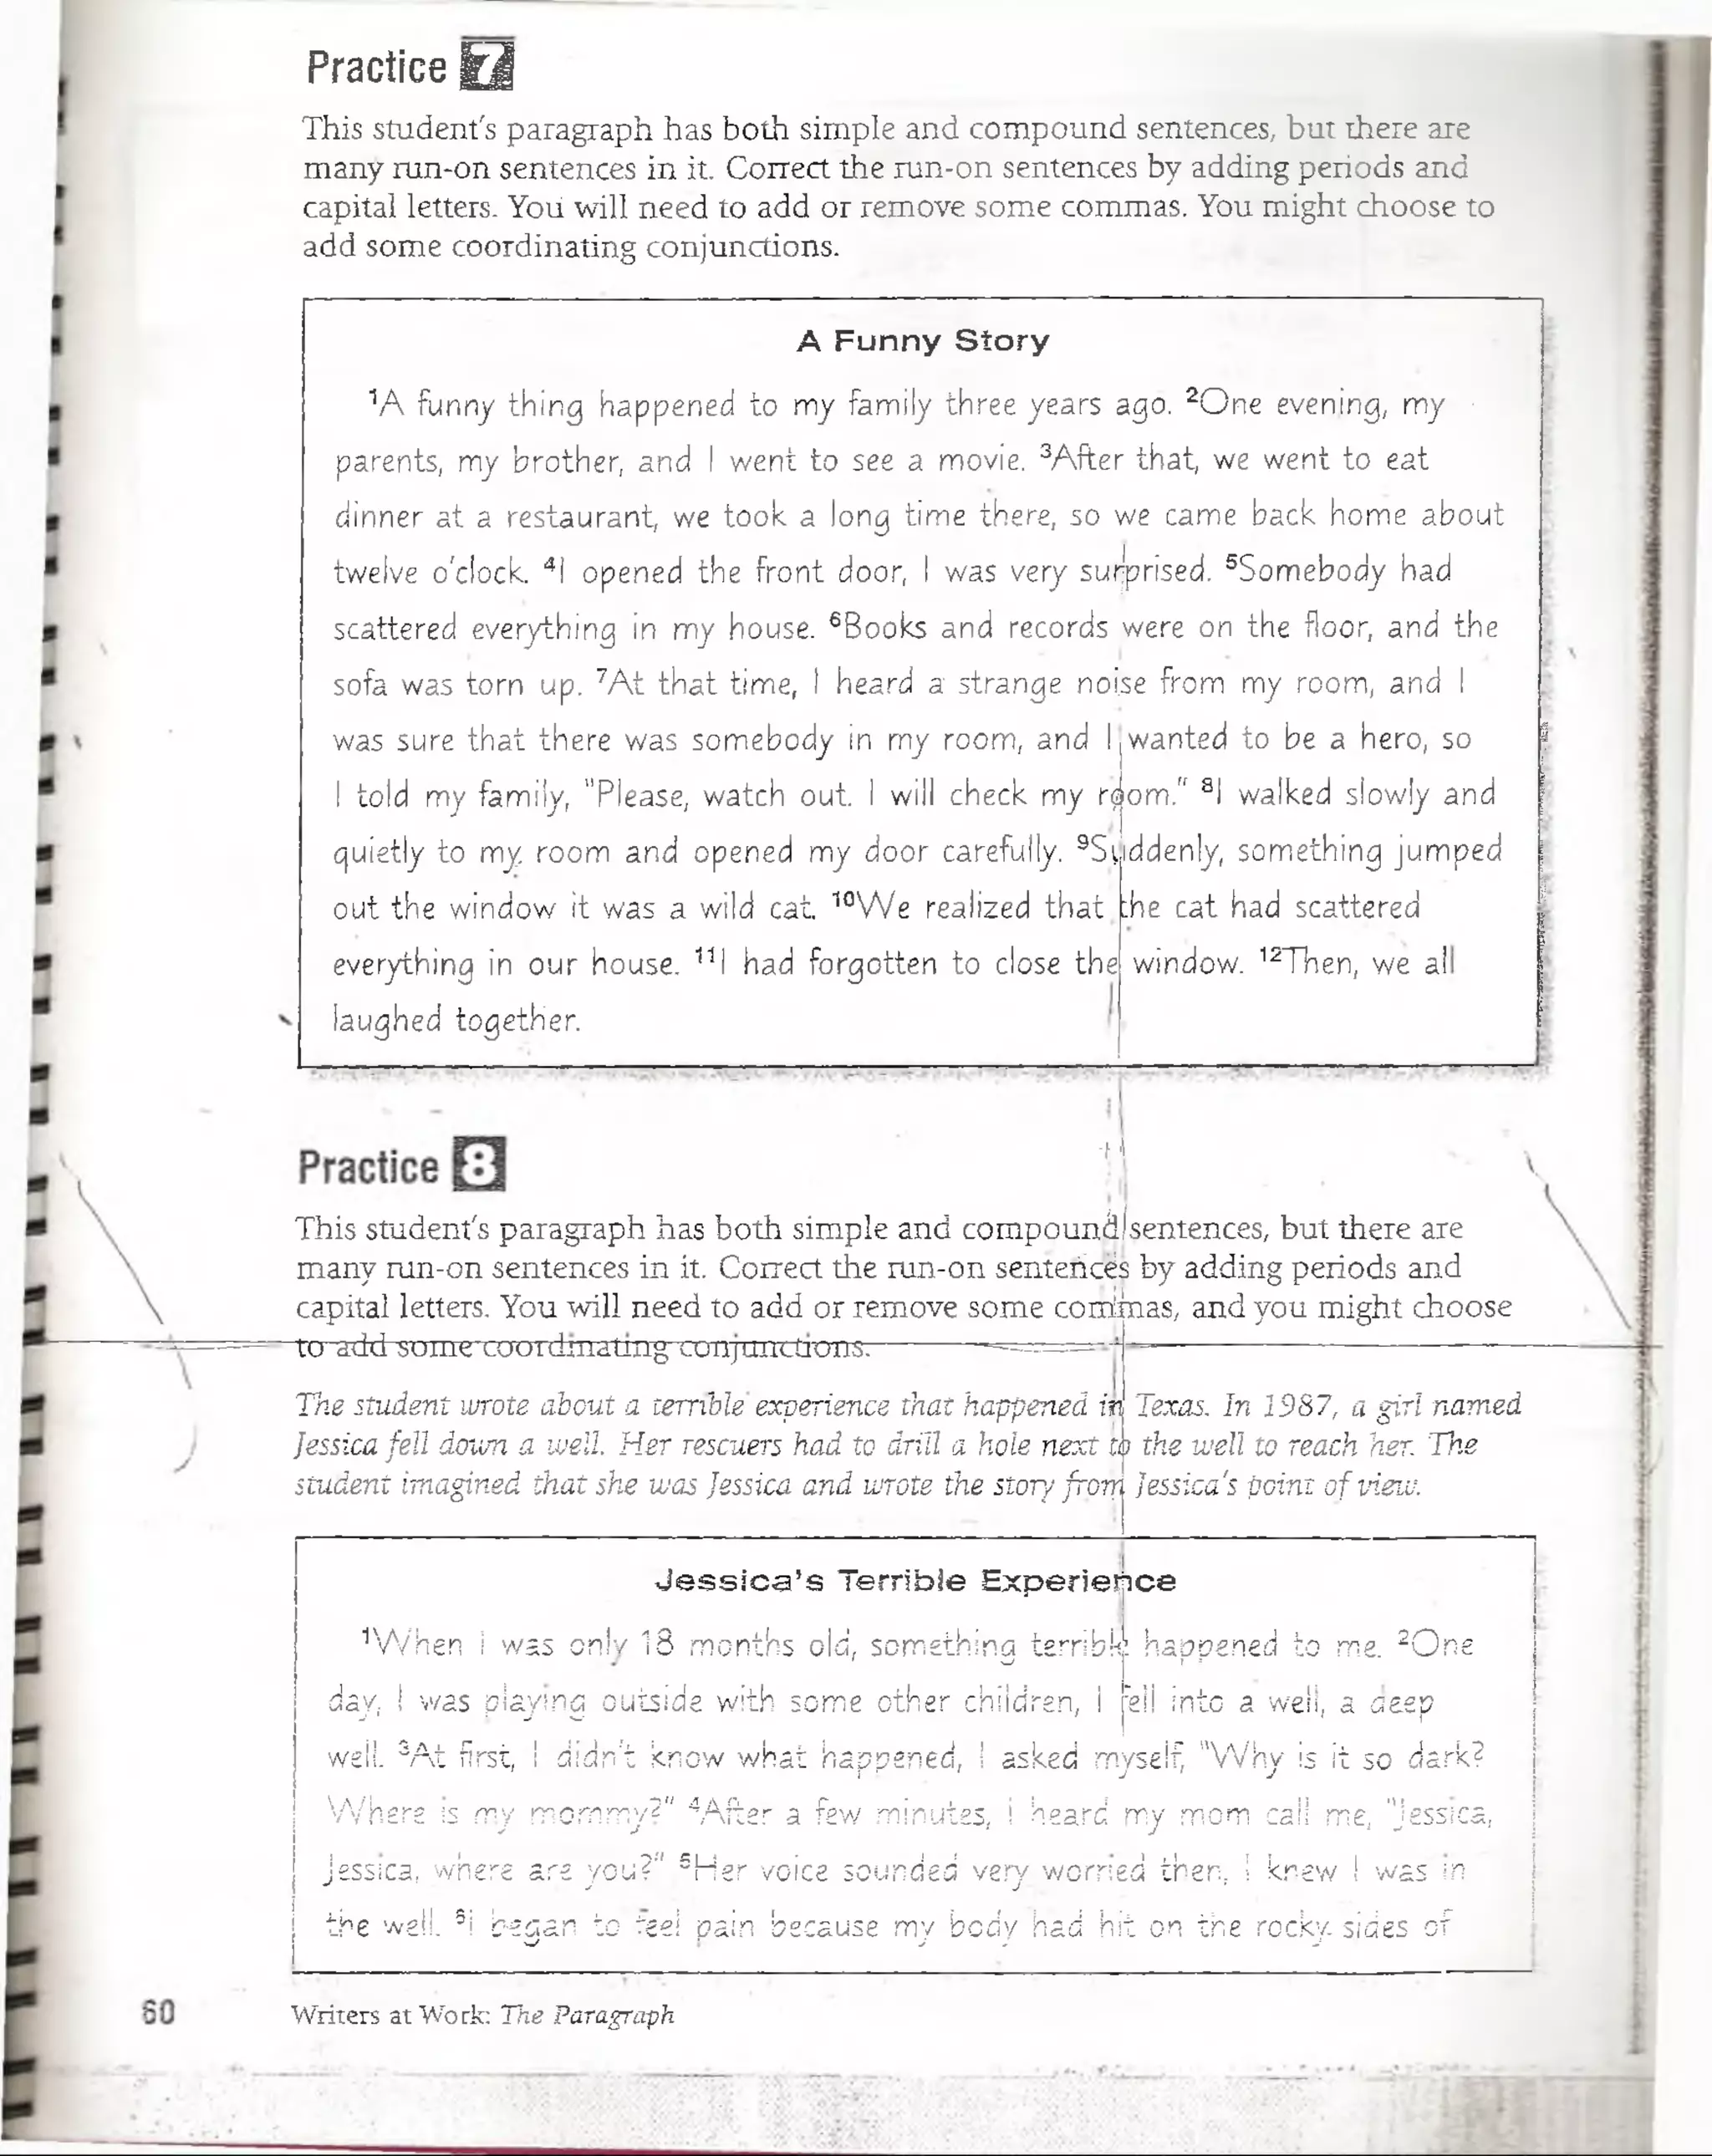 Practice 7
This student's paragraph has both simple and compound sentences, but there are
many run-on sentences in it. Correct the run-on sentences by adding periods and
capital letters. You will need to add or remove some commas. You might choose to
add some coordinating conjunctions.
A Funny Story
¹A funny thing happened to my family three years ago. ²One evening, my
parents, my brother, and I went to see a movie. ³After that, we went to eat
dinner at a restaurant, we took a long time there, so we came back home about
twelve o'clock. ⁴I opened the front door, I was very surprised. ⁵Somebody had
scattered everything in my house. ⁶Books and records were on the floor, and the
sofa was torn up. ⁷At that time, I heard a strange noise from my room, and I
was sure that there was somebody in my room, and I wanted to be a hero, so
I told my family, "Please, watch out. I will check my room." ⁸I walked slowly and
quietly to my room and opened my door carefully. ⁹Suddenly, something jumped
out the window it was a wild cat. ¹⁰We realized that the cat had scattered
everything in our house. ¹¹I had forgotten to close the window. ¹²Then, we all
laughed together.
Practice 8
This student's paragraph has both simple and compound sentences, but there are
many run-on sentences in it. Correct the run-on sentences by adding periods and
capital letters. You will need to add or remove some commas, and you might choose
to add some coordinating conjunctions.
The student wrote about a terrible experience that happened in Texas. In 1987, a girl named
Jessica fell down a well. Her rescuers had to drill a hole next to the well to reach her. The
student imagined that she was Jessica and wrote the story from Jessica's point of view.
Jessica's Terrible Experience
¹When I was only 18 months old, something terrible happened to me. ²One
day, I was playing outside with some other children, I fell into a well, a deep
well. ³At first, I didn't know what happened, I asked myself, "Why is it so dark?
Where is my mommy?" ⁴After a few minutes, I heard my mom call me, "Jessica,
Jessica, where are you?" ⁵Her voice sounded very worried then, I knew I was in
the well. ⁶I began to feel pain because my body had hit on the rocky sides of
60
Writers at Work: The Paragraph